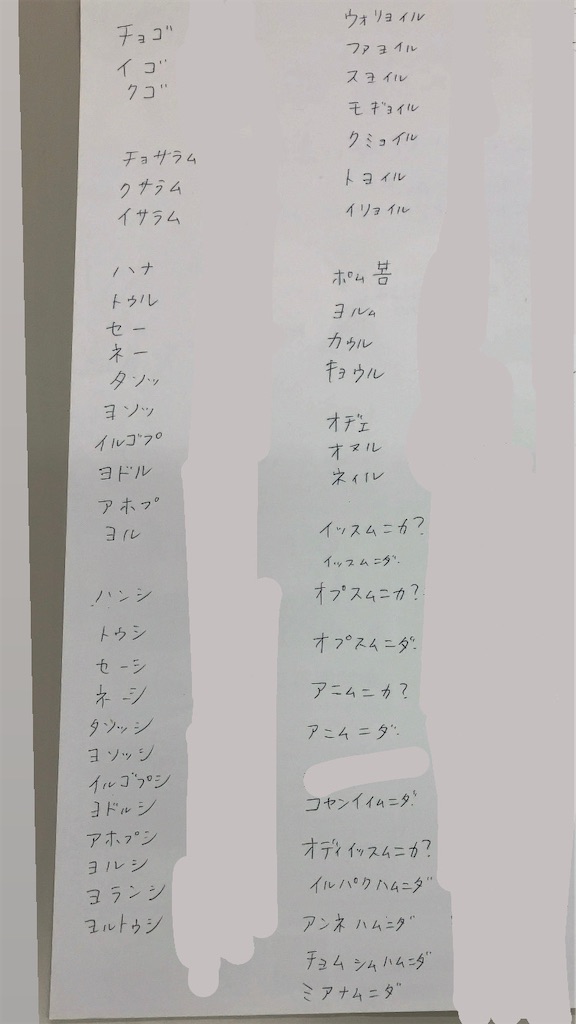 チョゴ
イゴ
クゴ
チョサラム
クサラム
イサラム
ハナ
トゥル
セー
ネー
タソッ
ヨソッ
イルゴプ
ヨドル
アホプ
ヨル
ハンシ
トウシ
セーシ
ネーシ
タソッシ
ヨソッシ
イルゴプシ
ヨドルシ
アホプシ
ヨルシ
ヨランシ
ヨルトウシ
ウォリョイル
ファヨイル
スヨイル
モギョイル
クミョイル
トヨイル
イリョイル
ポム 봄
ヨルム
カウル
キョウル
オヂェ
オヌル
ネイル
イッスムニカ?
イッスムニダ.
オプスムニカ?
オプスムニダ.
アニムニカ?
アニムニダ.
コヤンイイムニダ.
オディイッスムニカ?
イルパクハムニダ
アンネハムニダ
チョムシムハムニダ
ミアナムニダ